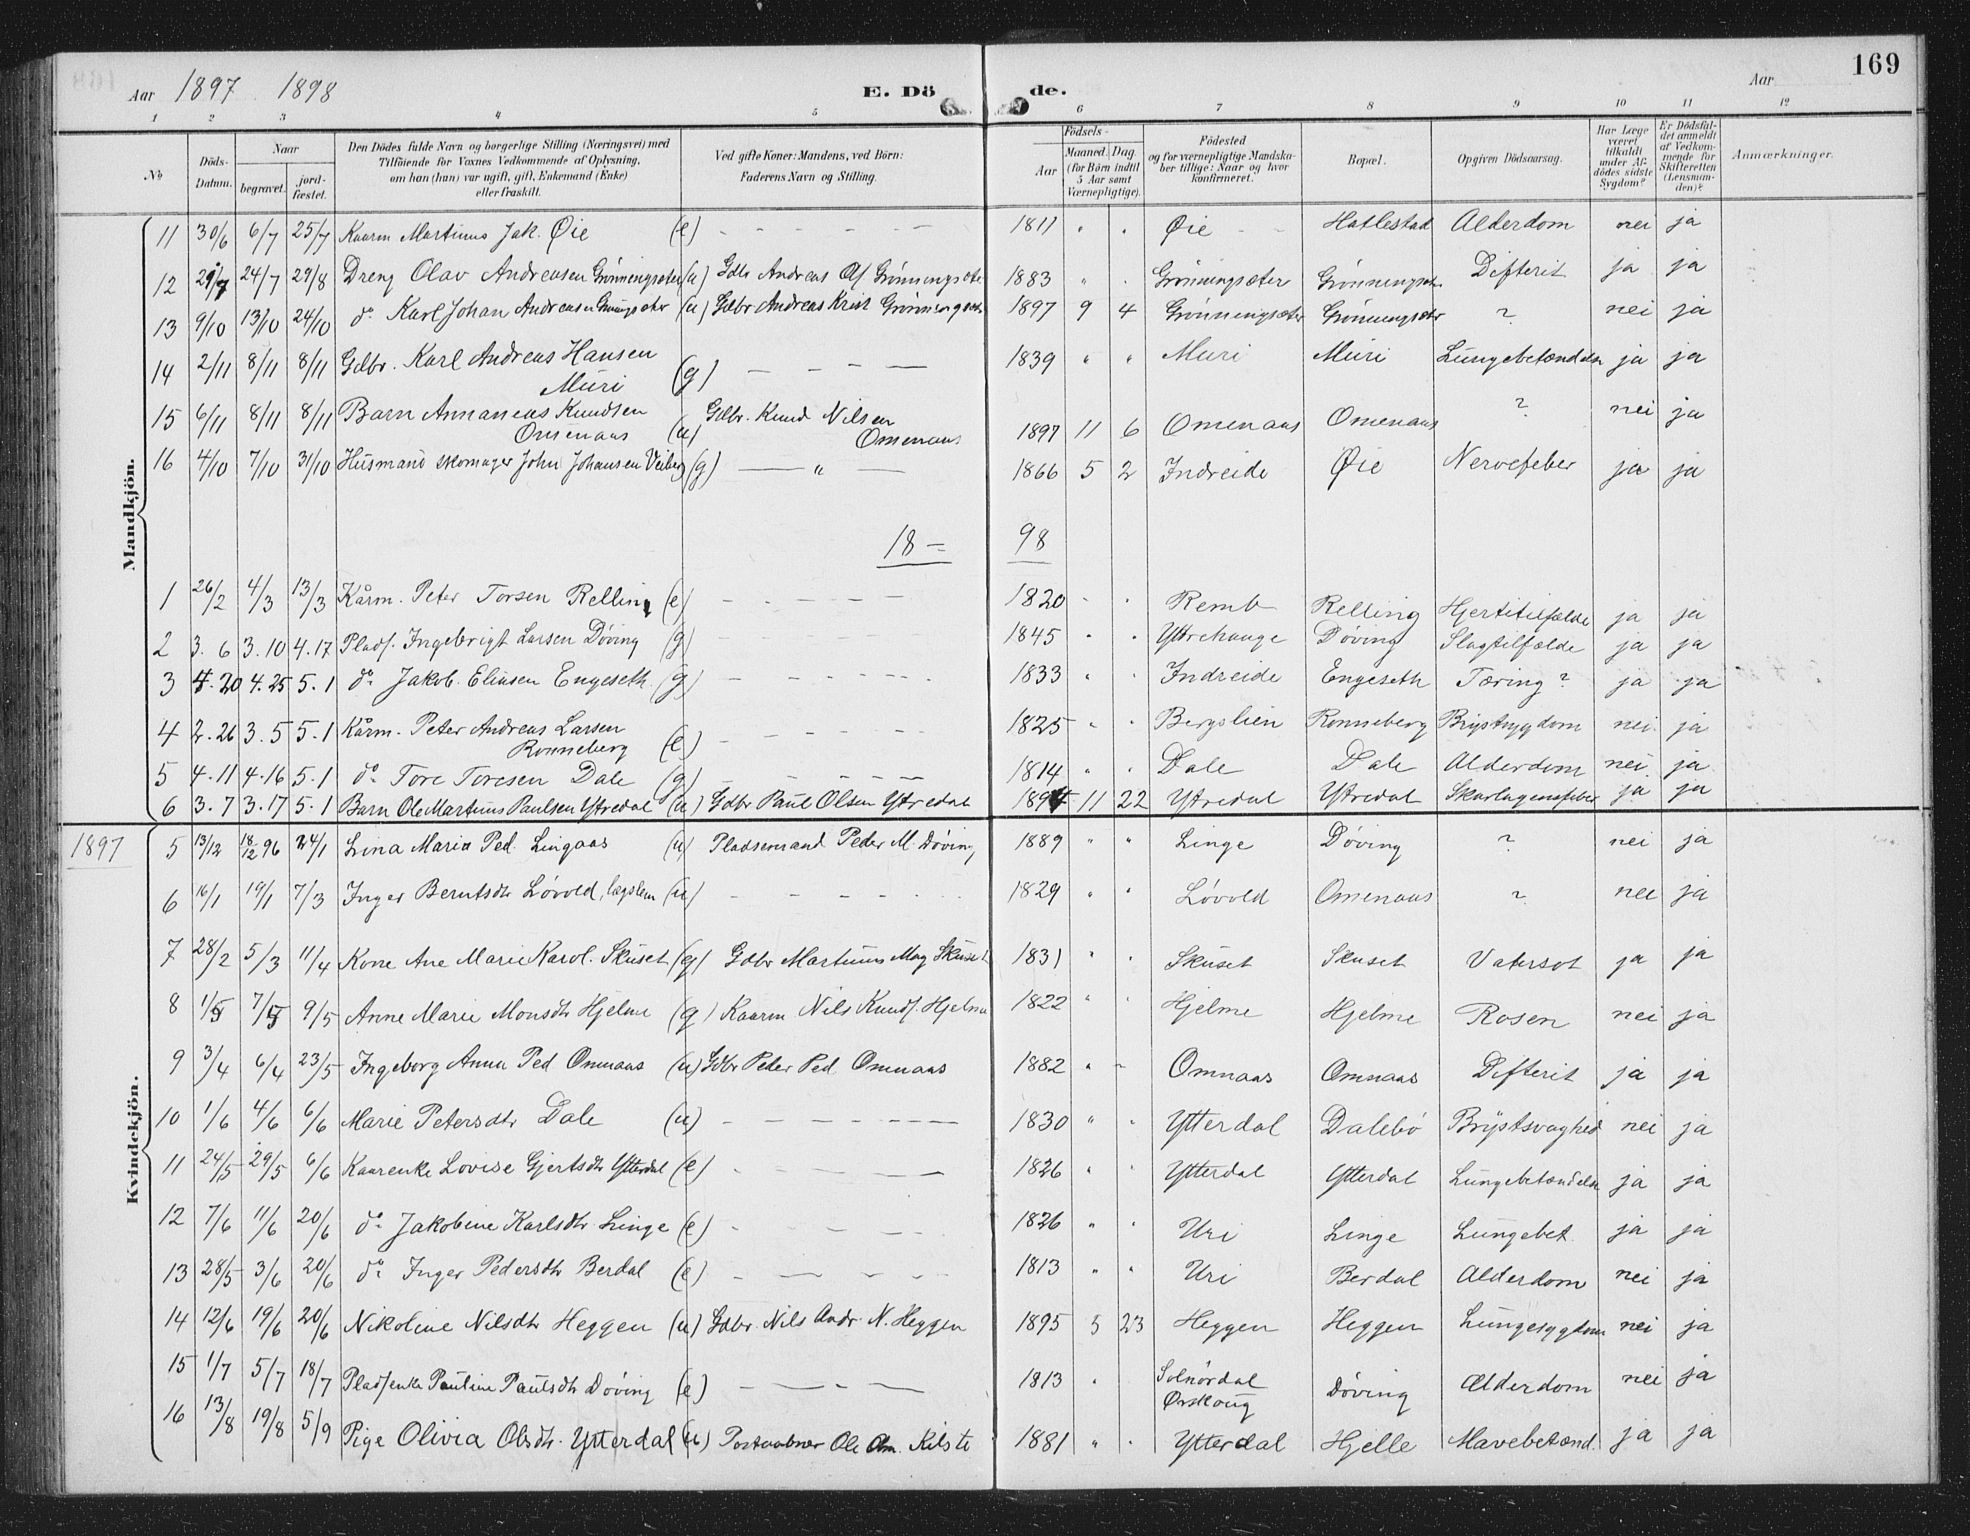 169
Aar 1897 1898 E. Dö de. Aar
1 2 3 4 5 6 7 8 9 10 11 12
No Döds-Datum. Naar begravet. jordfæstet. Den Dödes fulde Navn og borgerlige Stilling (Næringsvei) med Tilföiende for Voxnes Vedkommende af Oplysning, om han (hun) var ugift, gift, Enkemand (Enke) eller fraskilt. Ved gifte Koner: Mandens, ved Börn: Faderens Navn og Stilling. Födsels- Aar Maaned. Dag. (for Börn indtil 5 Aar samt Værnepligtige). Födested og for værnepligtige Mandskaber tillige: Naar og hvor konfirmeret. Bopæl. Opgiven Dödsaarsag. Har Læge været tilkaldt under Afdödes sidste Sygdom? Er Dödsfaldet anmeldt af Vedkommende for Skifteretten (Lensmanden)? Anmærkninger.
Mandkjön.
11 30/6 6/7 25/7 Kaarm Martinus Jak. Øie (e) 1811 " " Øie Hatlestad Alderdom nei ja
12 29/7 24/7 29/8 Dreng Olav Andreasen Grönningsæter (u) Gdbr Andreas Grönningsæter 1883 " " Grönningsæter Grönningsæter Difterit ja ja
13 9/10 13/10 24/10 do Karl Johan Andreasen (u) Gdbr Andreas Krist Grönningsæter 1897 9 4 Grönningsæter Grönningsæter ? nei ja
14 2/11 8/11 8/11 Gdbr. Karl Andreas Hansen
Muri (g) 1839 " " Muri Muri Lungebetændelse ja ja
15 6/11 8/11 8/11 Barn Annaneas Knudsen Gdbr. Knud Nilsen
Omenaas (u) Omenaas 1897 11 6 Omenaas Omenaas ? nei ja
16 4/10 7/10 31/10 Husmand skomager John Johansen Veiberg (g) " 1866 5 2 Indreide Øie Nervefeber ja ja
18 = 98
1 26/2 4/3 13/3 Kårm. Peter Torsen Relling (e) 1820 " " Remb Relling Hjertetilfælde ja ja
2 3.6 3.10 4.17 Plads. Ingebrigt Larsen Döving (g) 1845 " " Yttrehauge Döving Slagtilfælde ja ja
3 4.20 4.25 5.1 do Jakob Eliasen Engeseth (g) 1833 " " Indreide Engeseth Tæring? ja ja
4 2.26 3.5 5.1 Kårm. Peter Andreas Larsen
Ronneberg (e) 1825 " " Bergslien Ronneberg Brystsygdom nei ja
5 4.11 4.16 5.1 do Tore Toresen Dale (g) 1814 " " Dale Dale Alderdom nei ja
6 3.7 3.17 5.1 Barn Ole Martinus Paulsen Ytredal (u) Gdbr Paul Olsen Ytredal 1894 11 22 Ytredal Ytredal Skarlagensfeber ja ja
Kvindekjön.
1897 5 13/12 18/12 96 24/1 Lina Maria Ped. Lingaas (u) Pladsemand Peder M. Döving 1889 " " Linge Döving ? nei ja
6 16/1 19/1 7/3 Inger Berntsdtr Lövold, lægslem (u) 1829 " " Lövold Omenaas ? nei ja
7 28/2 5/3 11/4 Kone Ane Marie Karol. Skuset (g) Gdbr Martinus Mag Skuset 1831 " " Skuset Skuset Vatersot ja ja
8 1/5 7/5 9/5 Anne Marie Monsdtr Hjelme (g) Kaarm Nils Knuds. Hjelme 1822 " " Hjelme Hjelme Rosen nei ja
9 3/4 6/4 23/5 Ingeborg Anna Ped Omnaas (u) Gdbr Peder Ped. Omnaas 1882 " " Omnaas Omnaas Difterit ja ja
10 1/6 4/6 6/6 Marie Petersdtr Dale (u) 1830 " " Ytterdal Dalebö Brystsvaghed nei ja
11 24/5 29/5 6/6 Kaarenke Lovise Gjertsdtr Ytterdal (e) 1826 " " Ytterdal Ytterdal Lungebetændelse ja ja
12 7/6 11/6 20/6 do Jakobine Karlsdtr Linge (e) 1826 " " Uri Linge Lungebet. ja ja
13 28/5 3/6 20/6 do Inger Pedersdtr Berdal (e) 1813 " " Uri Berdal Alderdom nei ja
14 12/6 19/6 20/6 Nikoline Nilsdtr Heggen (u) Gdbr. Nils Andr. N. Heggen 1895 5 23 Heggen Heggen Lungesygdom nei ja
15 1/7 5/7 18/7 Pladsenke Pauline Paulsdtr Döving (e) 1813 " Solnördal
Ørskoug Döving Alderdom nei ja
16 13/8 19/8 5/9 Pige Olivia Olsdtr. Ytterdal (u) Postaabner Ole Om. Kilsti 1881 " " Ytterdal Hjelle Mavebetænd. ja ja